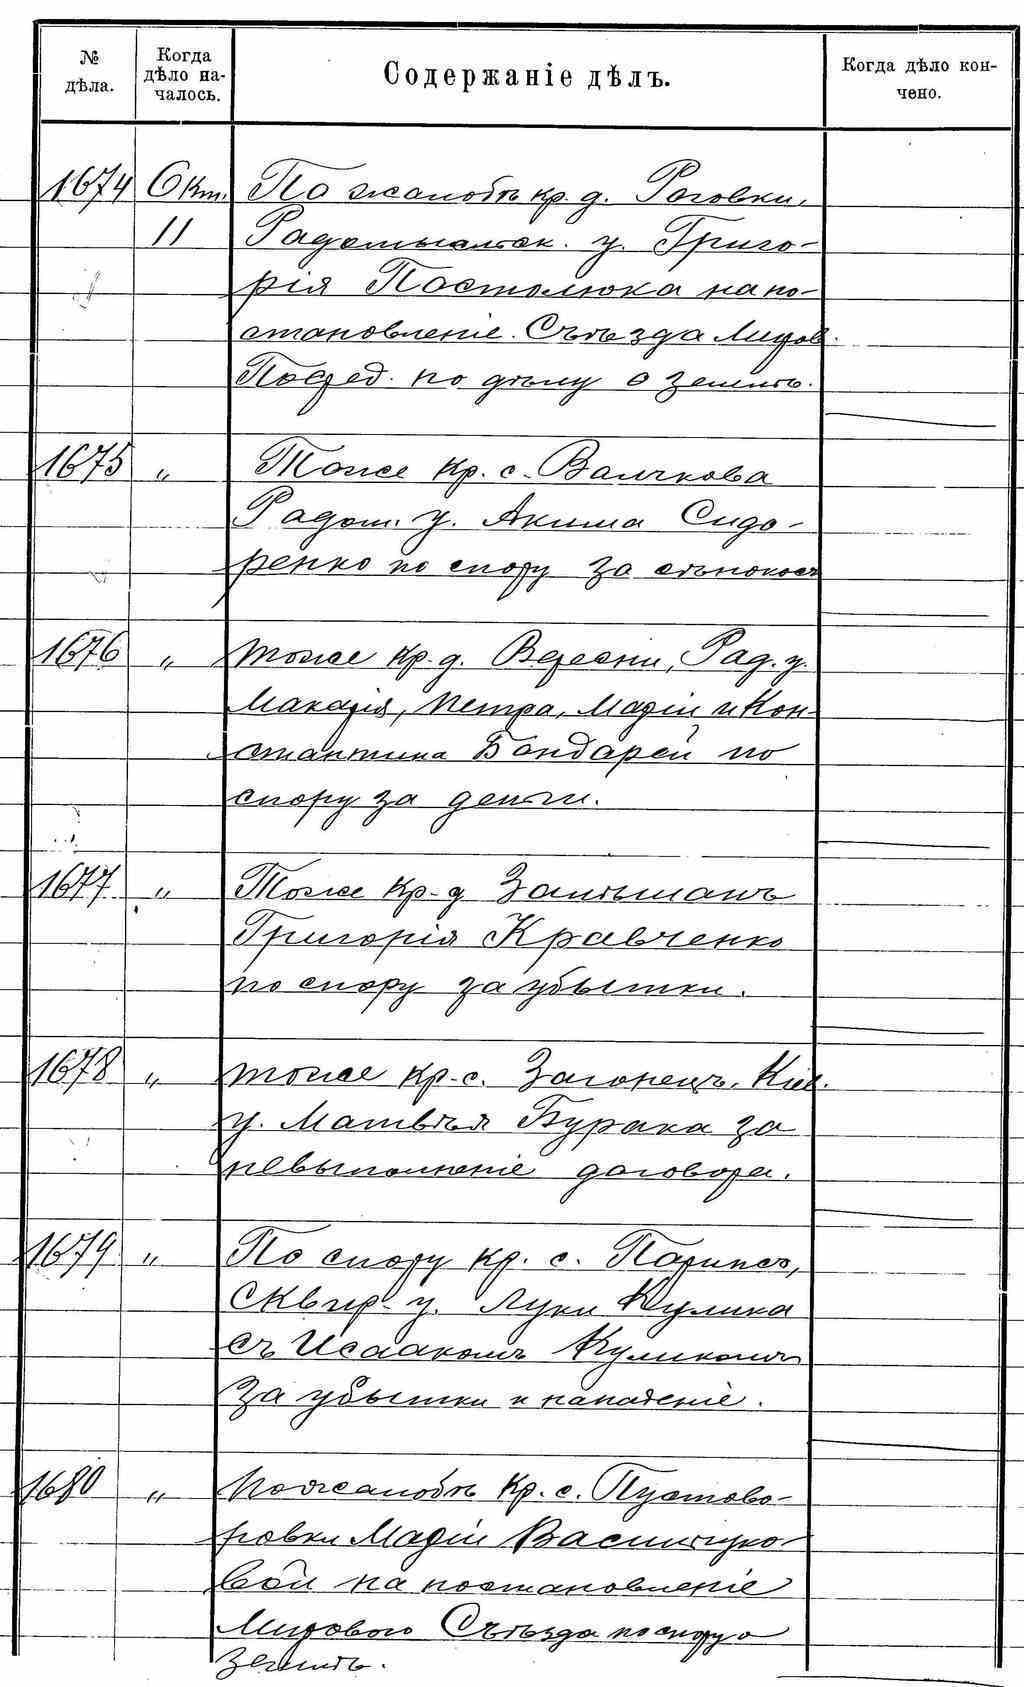 № дѣла.
Когда дѣло началось.
Содержаніе дѣлъ.
Когда дѣло кончено.
1674 Окт. По жалобѣ кр. д. Роговки,
11 Радомысльск. у. Григо-
рія Постолюка на по-
становленіе Съѣзда Миров.
Посред. по дѣлу о землѣ.
1675 „ Тоже кр. с. Вальчкова
Радом. у. Акима Сидо-
ренко по спору за сѣнокосъ
1676 „ тоже кр. д. Вересни, Рад. у.
Макарія, Петра, Маріи и Кон-
стантина Бондарей по
спору за деньги.
1677 „ Тоже кр. д.
Григорія Кравченко
по спору за убытки.
1678 „ тоже кр. с. Кіев.
у. Матвѣя Бурака за
невыполненіе договора.
1679 „ По спору кр. с. Парипсъ,
Сквир. у. Луки Кулика
съ Исаакомъ Куликомъ
за убытки и нападеніе.
1680 „ по жалобѣ кр. с. Пустово-
ровки Маріи
вой на постановленіе
Мирового Съѣзда по спору о
землѣ.